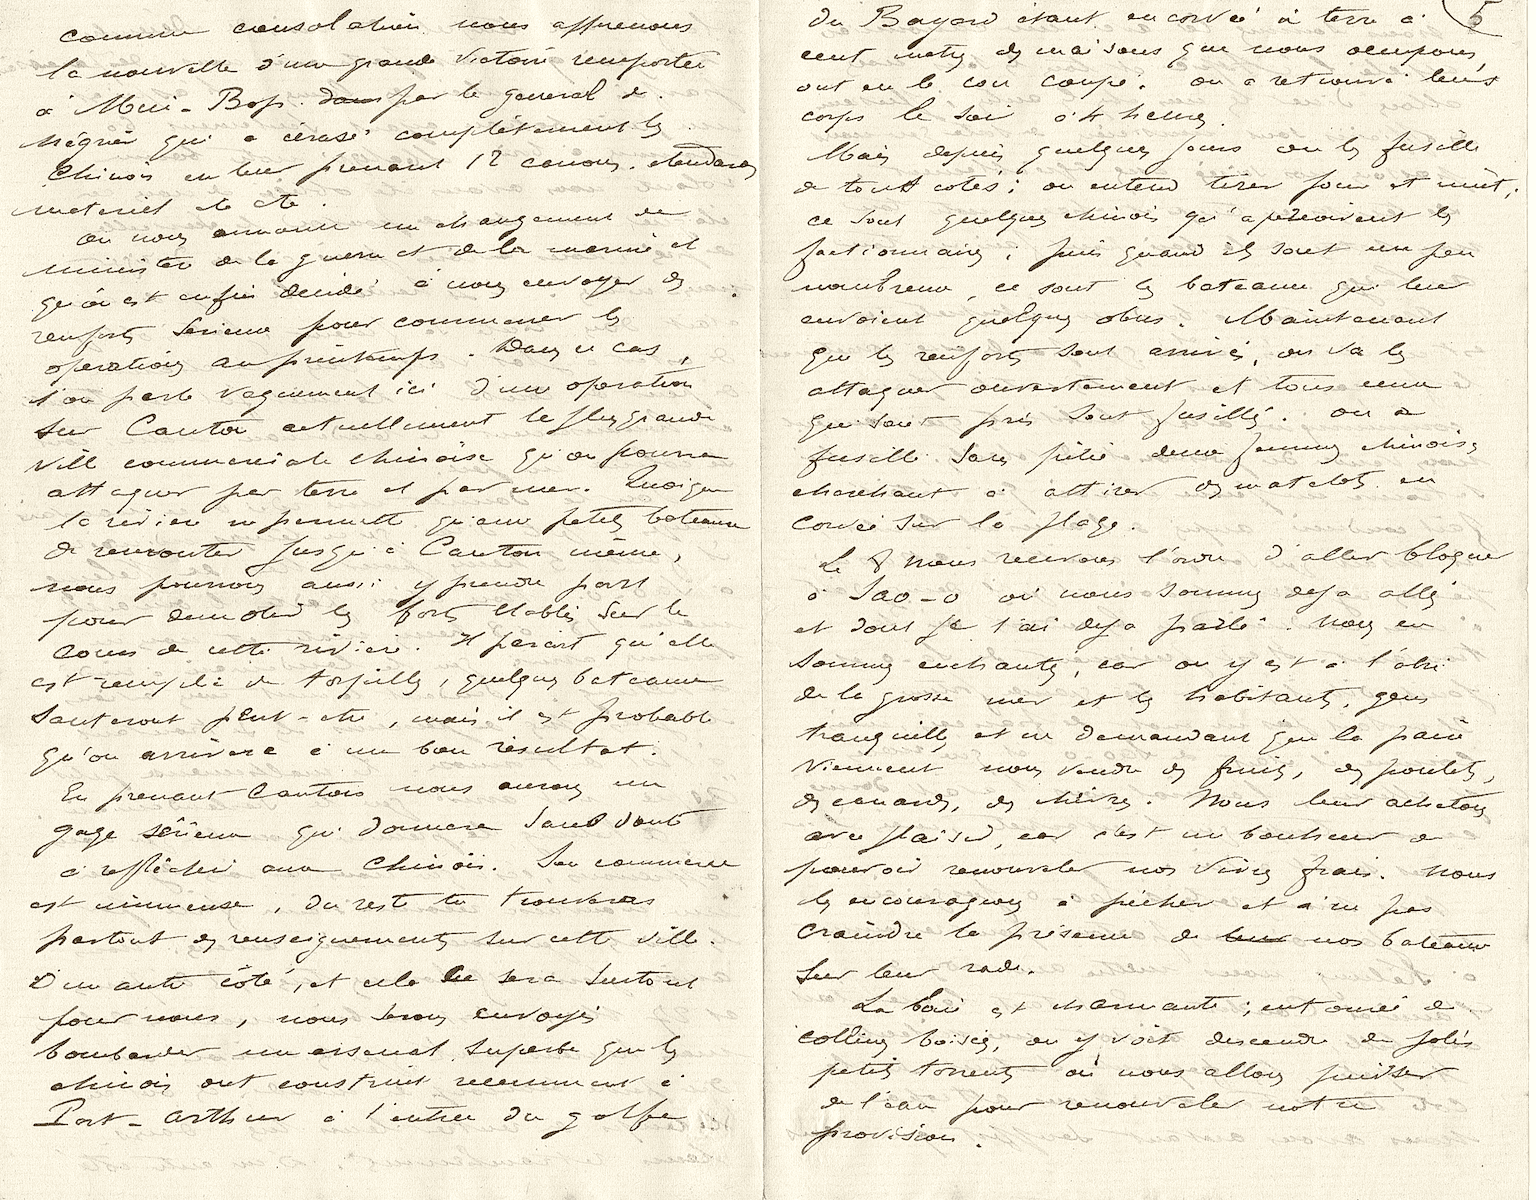 comme consolation nous apprenons
la nouvelle d'une grande victoire remportée
à Nui-Bop. dans par le general de
Négrier qui a écrasé complètement les
Chinois en leur prenant 12 canons. etendards
materiel etc etc.
On nous annonce un changement de
ministre de la guerre et de la marine et
qu'on est enfin décidé à nous envoyer des
renforts serieux pour commencer les
operations au printemps. Dans ce cas,
l'on parle vaguement ici d'une operation
sur Canton actuellement la plus grande
ville commerciale chinoise qu'on pourra
attaquer par terre et par mer. Quoique
la rivière ne permette qu'aux petits bateaux
de remonter jusqu'à Canton même,
nous pourrons aussi y prendre part
pour demolir les forts etablis sur le
cours de cette rivière. Il parait qu'elle
est remplie de torpilles, quelques bateaux
sauteront peut-etre, mais il est probable
qu'on arrivera à un bon résultat.
En prenant Canton nous aurons un
gage sérieux qui donnera sans doute
à réflechir aux Chinois. Son commerce
est immense, du reste tu trouveras
partout des renseignements sur cette ville.
D'un autre côté, et cela sera surtout
pour nous, nous serons envoyés
bombarder un arsenal superbe que les
chinois ont construit recemment à
Port-Arthur à l'entrée du golfe
5
du Bayard étant en corvée à terre à
cent metres des maisons que nous occupons,
ont eu le cou coupé. on a retrouvé leurs
corps le soir à 4 heures.
Mais depuis quelques jours on les fusille
de tout cotés; on entend tirer jour et nuit;
ce sont quelques chinois qu'aperçoivent les
factionnaires; puis quand ils sont un peu
nombreux, ce sont les bateaux qui leur
envoient quelques obus. Maintenant
que les renforts sont arrivés, on va les
attaquer ouvertement et tous ceux
qui sont pris sont fusillés. on a
fusillé sans pitié deux femmes chinoises
cherchant à attirer des matelots en
corvée sur la plage.
Le 8 nous recevons l'ordre d'aller bloquer
à Sao-o où nous sommes deja allés
et dont je t'ai deja parlé. Nous en
sommes enchantés, car on y est à l'abri
de la grosse mer et les habitants, gens
tranquilles et ne demandant que la paix
viennent nous vendre des fruits, des poulets,
des canards, des chèvres. Nous leur achetons
avec plaisir, car c'est un bonheur de
pouvoir renouveler nos vivres frais. Nous
les encourageons à pêcher et à ne pas
craindre la présence de leur nos bateaux
sur leur rade.
La baie est charmante; entourée de
collines boisées, on y voit descendre de jolis
petits torrents où nous allons puiser
de l'eau pour renouveler notre
provision.